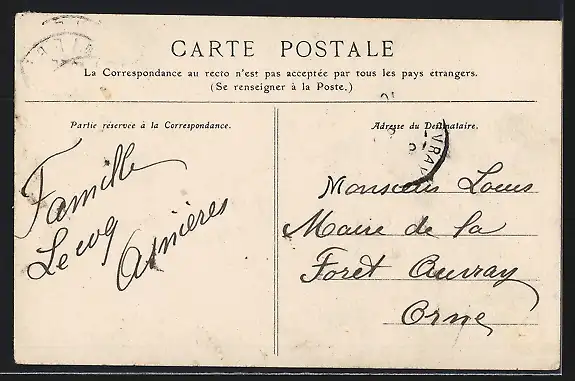 CARTE POSTALE
La Correspondance au recto n'est pas acceptée par tous les pays étrangers.
(Se renseigner à la Poste.)
Partie réservée à la Correspondance.
Adresse du Destinataire.
Famille
Lecoq
Asnières
VRAY
Monsieur Louis
Maire de la
Foret Auvray
Orne